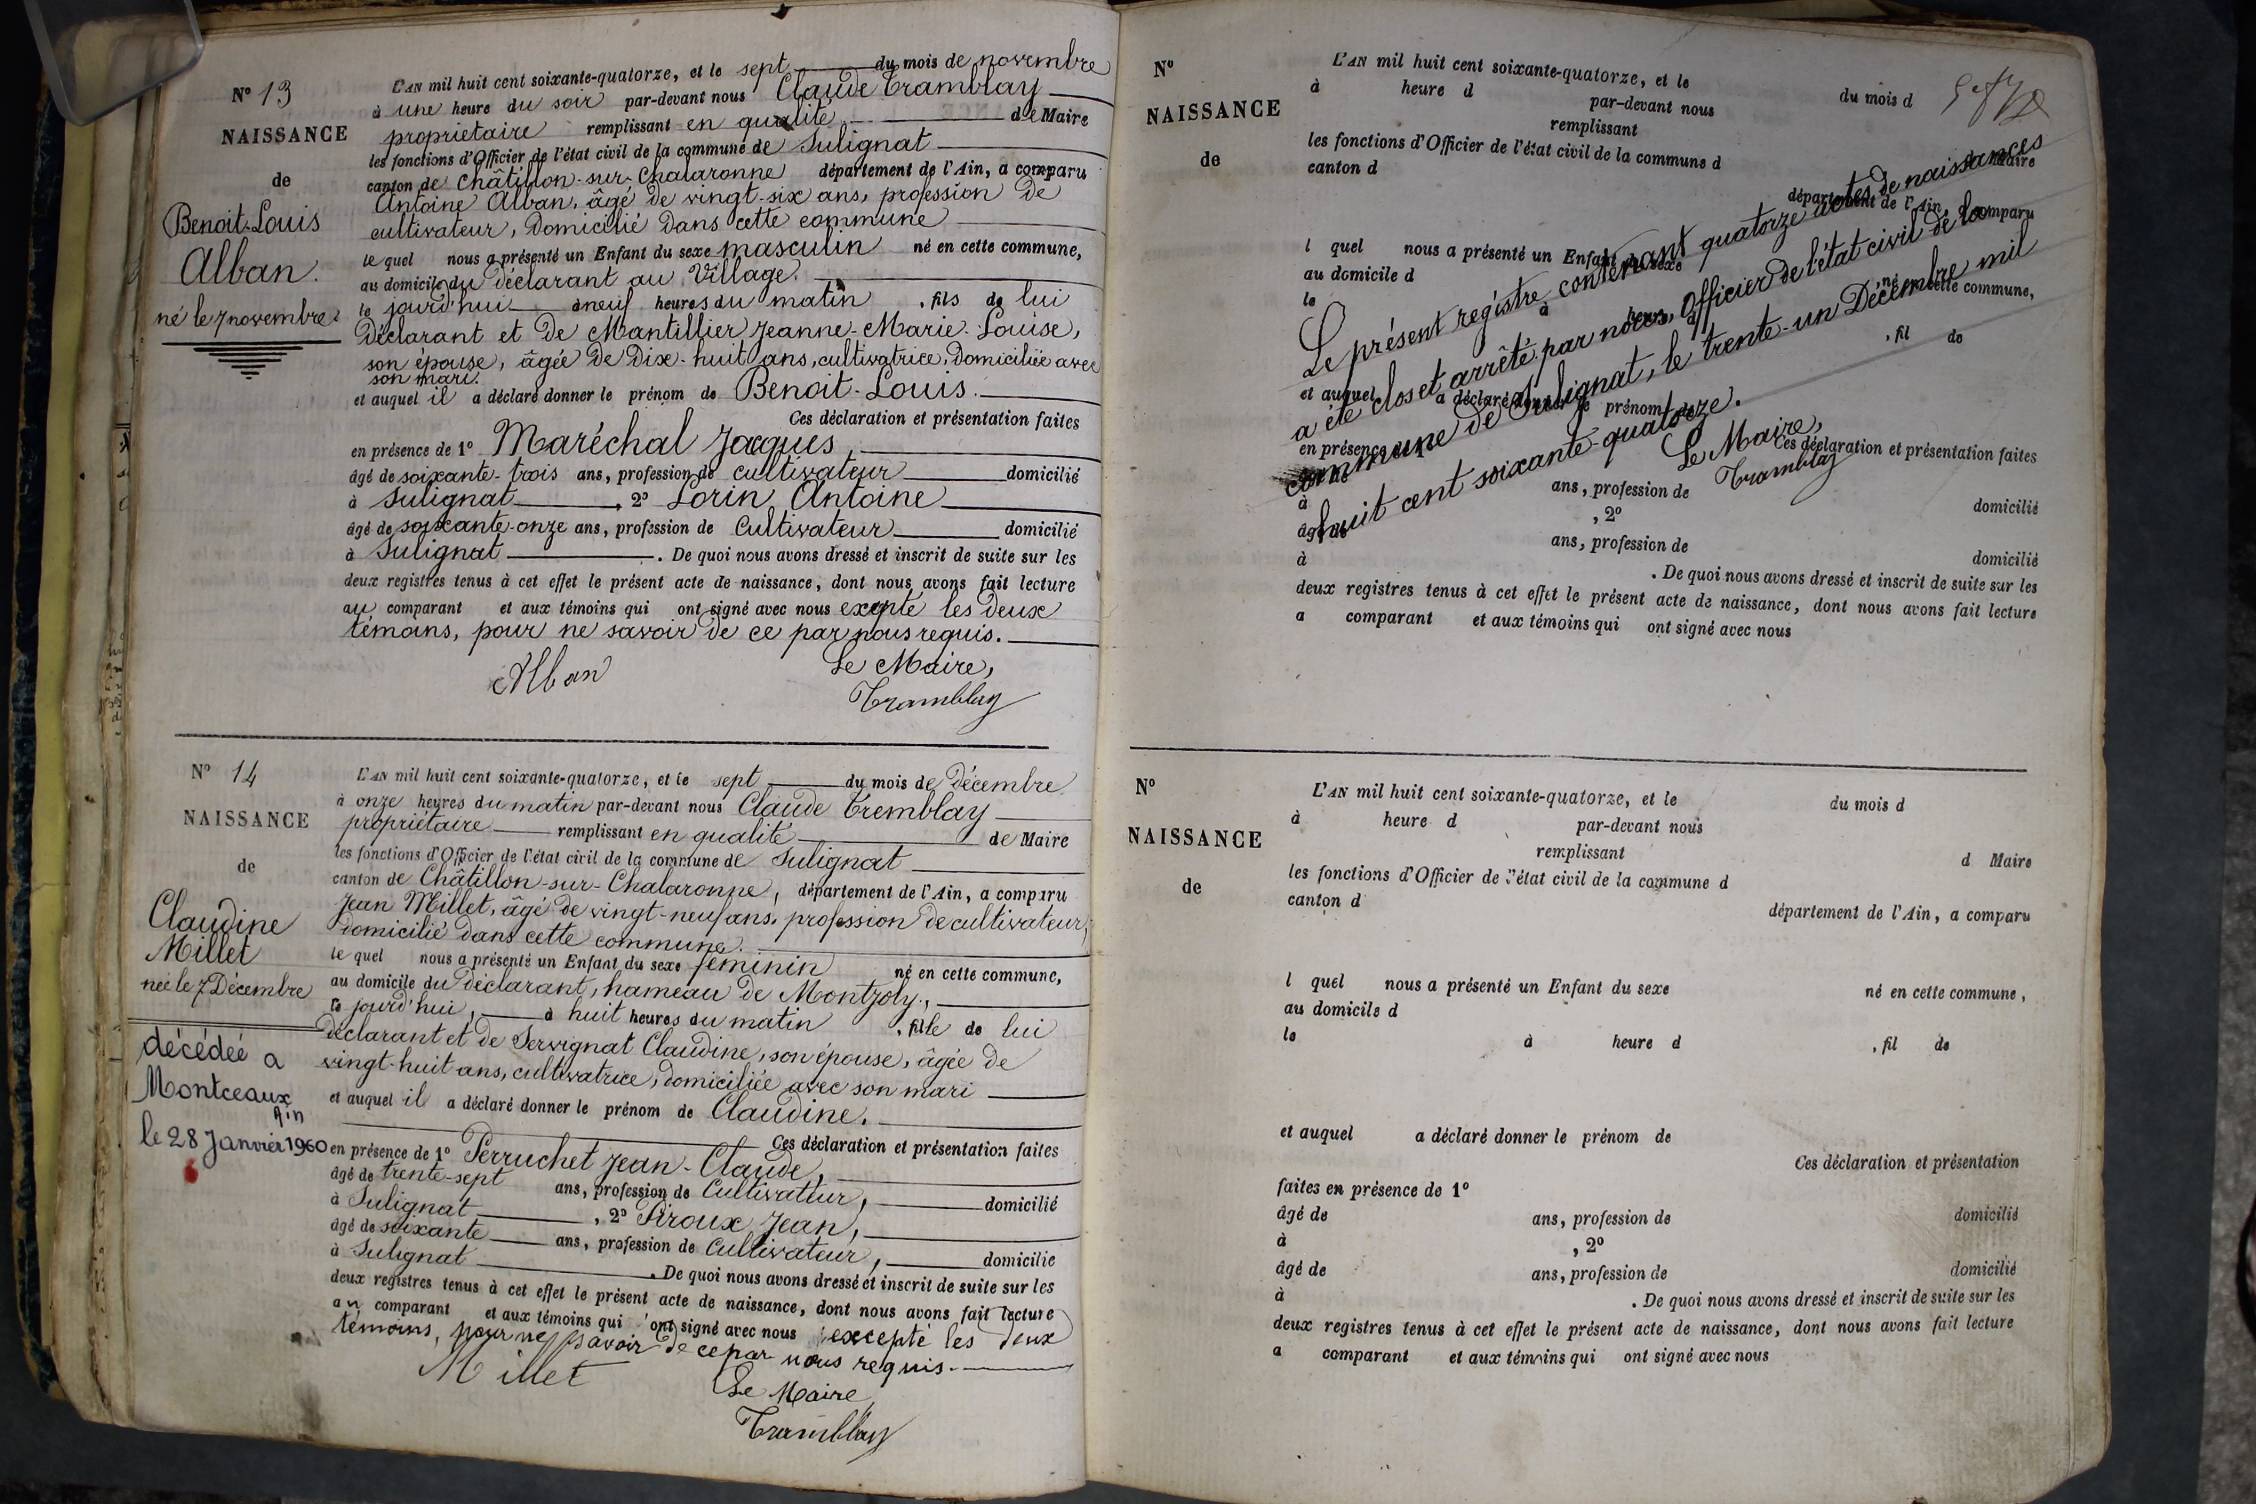 N° 13
NAISSANCE
de
Benoit-Louis
Alban.
né le 7 novembre
L'AN mil huit cent soixante-quatorze, et le sept du mois de novembre
à une heure du soir par-devant nous Claude Tramblay
propriétaire remplissant en qualité de Maire
les fonctions d'Officier de l'état civil de la commune de Sulignat
canton de Châtillon-sur-Chalaronne département de l'Ain, a comparu
Antoine Alban, âgé de vingt-six ans, profession de
cultivateur, domicilié dans cette commune
le quel nous a présenté un Enfant du sexe masculin né en cette commune,
au domicile du déclarant au Village.
le jourd'hui à neuf heures du matin, fils de lui
déclarant et de Mantillier Jeanne-Marie-Louise,
son épouse, âgée de dix-huit ans, cultivatrice, domiciliée avec
son mari.
et auquel il a déclaré donner le prénom de Benoit-Louis.
Ces déclaration et présentation faites
en présence de 1° Maréchal Jacques
âgé de soixante-trois ans, profession de cultivateur domicilié
à Sulignat, 2° Lorin Antoine
âgé de soixante-onze ans, profession de Cultivateur domicilié
à Sulignat. De quoi nous avons dressé et inscrit de suite sur les
deux registres tenus à cet effet le présent acte de naissance, dont nous avons fait lecture
au comparant et aux témoins qui ont signé avec nous excepté les deux
témoins, pour ne savoir de ce par nous requis.
Alban
Le Maire,
Tramblay
N° 14
NAISSANCE
de
Claudine
Millet
née le 7 Décembre
décédée a
Montceaux
Ain
le 28 Janvier 1960
L'AN mil huit cent soixante-quatorze, et le sept du mois de Décembre
à onze heures du matin par-devant nous Claude Tremblay
propriétaire remplissant en qualité de Maire
les fonctions d'Officier de l'état civil de la commune de Sulignat
canton de Châtillon-sur-Chalaronne, département de l'Ain, a comparu
Jean Millet, âgé de vingt-neuf ans, profession de cultivateur,
domicilié dans cette commune.
le quel nous a présenté un Enfant du sexe féminin né en cette commune,
au domicile du déclarant, hameau de Montjoly,
le jourd'hui, à huit heures du matin, fille de lui
déclarant et de Servignat Claudine, son épouse, âgée de
vingt-huit ans, cultivatrice, domiciliée avec son mari
et auquel il a déclaré donner le prénom de Claudine.
Ces déclaration et présentation faites
en présence de 1° Perruchet Jean-Claude,
âgé de trente-sept ans, profession de Cultivateur, domicilié
à Sulignat, 2° Siroux Jean,
âgé de soixante ans, profession de Cultivateur, domicilié
à Sulignat. De quoi nous avons dressé et inscrit de suite sur les
deux registres tenus à cet effet le présent acte de naissance, dont nous avons fait lecture
au comparant et aux témoins qui ont signé avec nous excepté les deux
témoins, pour ne savoir de ce par nous requis.
Millet
Le Maire
Tramblay
N°
NAISSANCE
de
L'AN mil huit cent soixante-quatorze, et le du mois d
à heure d par-devant nous
remplissant d Maire
les fonctions d'Officier de l'état civil de la commune d
canton d département de l'Ain, a comparu
l quel nous a présenté un Enfant du sexe né en cette commune,
au domicile d
le à heure d, fil de
et auquel a déclaré donner le prénom de
Ces déclaration et présentation faites
en présence de 1°
âgé de ans, profession de domicilié
à, 2°
âgé de ans, profession de domicilié
à. De quoi nous avons dressé et inscrit de suite sur les
deux registres tenus à cet effet le présent acte de naissance, dont nous avons fait lecture
a comparant et aux témoins qui ont signé avec nous
Le présent registre contenant quatorze actes de naissances
a été clos et arrêté par nous, Officier de l'état civil de la
commune de Sulignat, le trente-un Décembre mil
huit cent soixante-quatorze.
Le Maire,
Tramblay
N°
NAISSANCE
de
L'AN mil huit cent soixante-quatorze, et le du mois d
à heure d par-devant nous
remplissant d Maire
les fonctions d'Officier de l'état civil de la commune d
canton d département de l'Ain, a comparu
l quel nous a présenté un Enfant du sexe né en cette commune,
au domicile d
le à heure d, fil de
et auquel a déclaré donner le prénom de
Ces déclaration et présentation
faites en présence de 1°
âgé de ans, profession de domicilié
à, 2°
âgé de ans, profession de domicilié
à. De quoi nous avons dressé et inscrit de suite sur les
deux registres tenus à cet effet le présent acte de naissance, dont nous avons fait lecture
a comparant et aux témoins qui ont signé avec nous